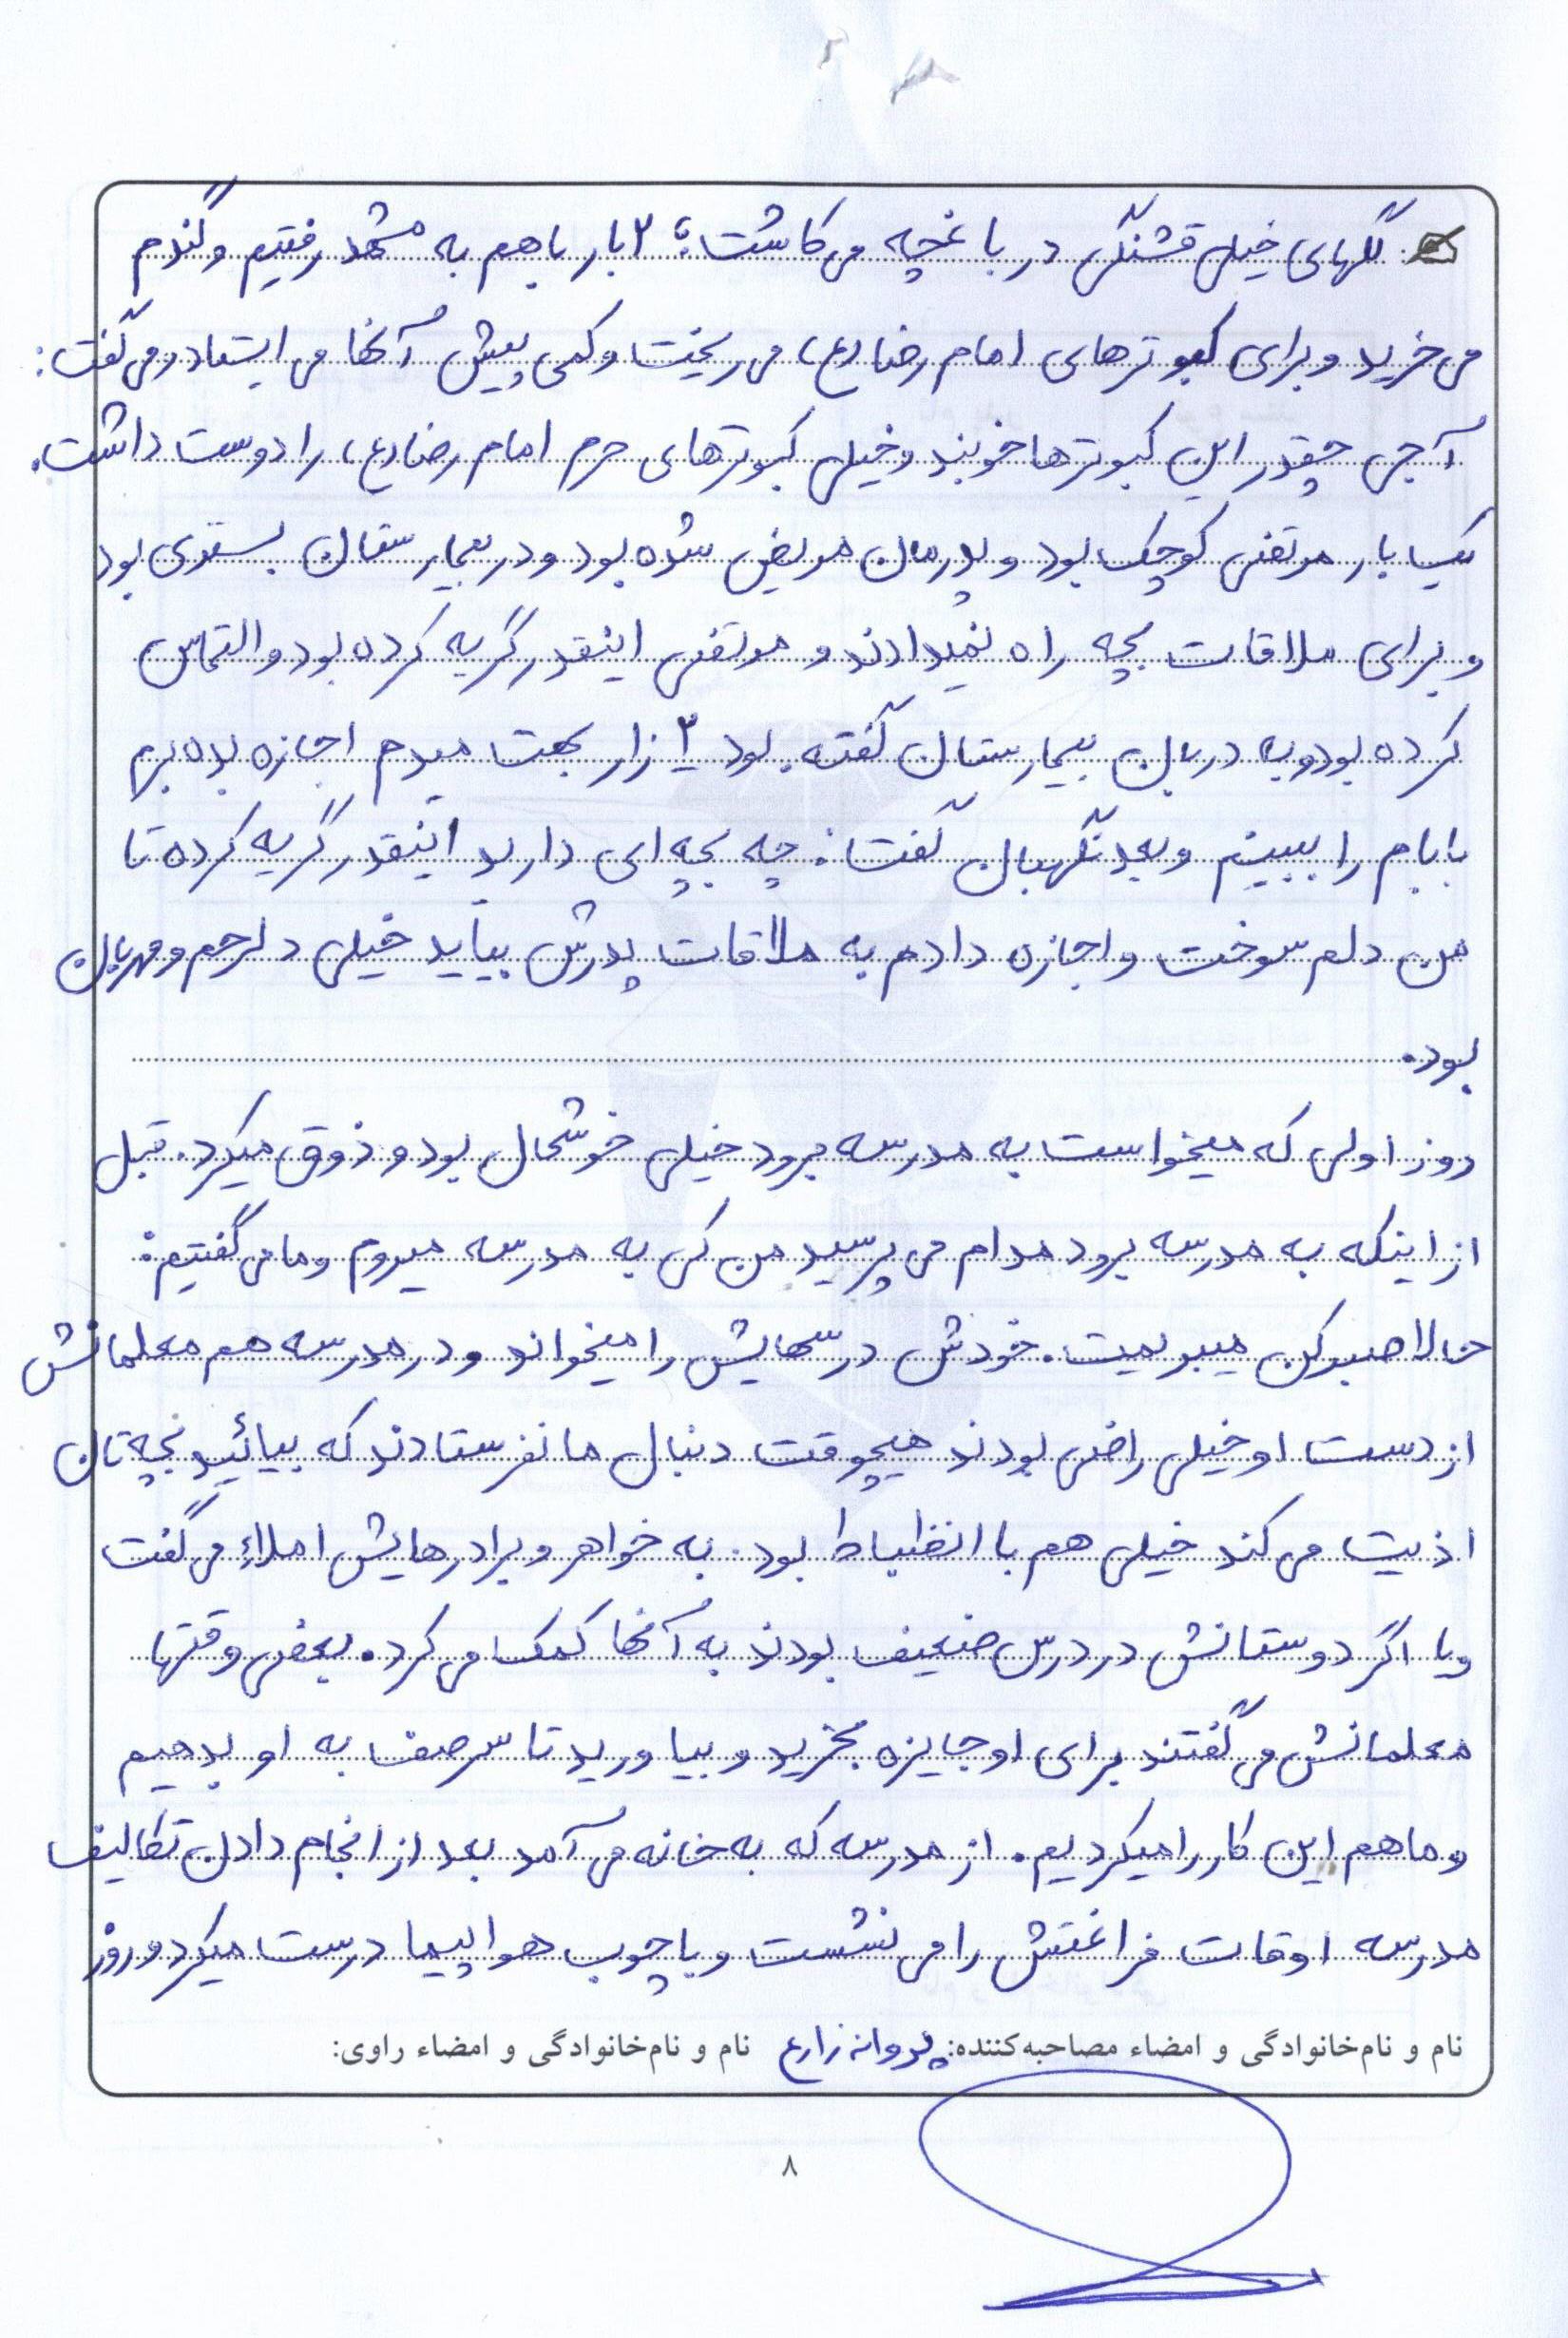 گلهای خیلی قشنگی در باغچه می کاشت؛ ۲ بار باهم به مشهد رفتیم و گندم
می خرید و برای کبوترهای امام رضا (ع) می ریخت و کمی پیش آنها می ایستاد و می گفت:
آجی چقدر این کبوترها خوبند و خیلی کبوترهای حرم امام رضا (ع) را دوست داشت.
یک بار مرتضی کوچک بود و پدرمان مریض شده بود و در بیمارستان بستری بود
و برای ملاقات بچه راه نمیدادند و مرتضی اینقدر گریه کرده بود و التماس
کرده بود و به دربان بیمارستان گفته بود ۲ زار بهت میدم اجازه بده برم
بابام را ببینم و بعد نگهبان گفت: چه بچه ای دارید اینقدر گریه کرده تا
من دلم سوخت و اجازه دادم به ملاقات پدرش بیاید خیلی دلرحم و مهربان
بود.
روز اولی که میخواست به مدرسه برود خیلی خوشحال بود و ذوق میکرد. قبل
از اینکه به مدرسه برود مدام می پرسید من کی به مدرسه میروم و ما می گفتیم:
حالا صبر کن میبریمت. خودش درسهایش را میخواند و در مدرسه هم معلمانش
از دست او خیلی راضی بودند هیچوقت دنبال ما نفرستادند که بیائید بچه تان
اذیت می کند خیلی هم با انظباط بود. به خواهر و برادرهایش املاء می گفت
و یا اگر دوستانش در درس ضعیف بودند به آنها کمک می کرد. بعضی وقتها
معلمانش می گفتند برای او جایزه بخرید و بیاورید تا سر صف به او بدهیم
و ما هم این کار را میکردیم. از مدرسه که به خانه می آمد بعد از انجام دادن تکالیف
مدرسه اوقات فراغتش را می نشست و با چوب هواپیما درست میکرد و روز
نام و نام‌خانوادگی و امضاء مصاحبه‌کننده: پروانه زارع نام و نام‌خانوادگی و امضاء راوی:
۸